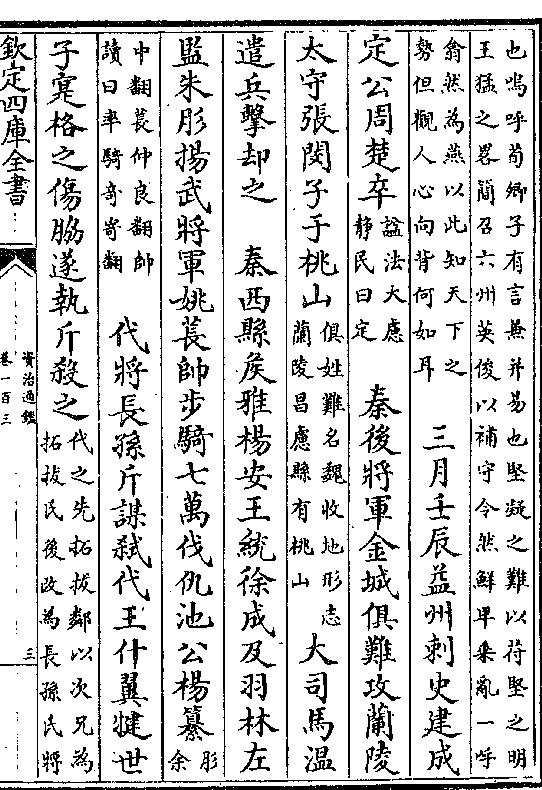 也嗚呼荀卿子有言兼并易也堅凝之難以苻堅之明
王猛之畧簡召六州英俊以補守令然鮮卑乗亂一呼
翕然為燕以此知天下之
勢但觀人心向背何如耳
三月壬辰益州刺史建成
定公周楚卒
諡法大慮
静民曰定
秦後將軍金城俱難攻蘭陵
太守張閔子于桃山
俱姓難名魏收地形志
蘭陵昌慮縣有桃山
大司馬温
遣兵擊却之 秦西縣矦雅楊安王統徐成及羽林左
監朱肜揚武將軍姚萇帥步騎七萬伐仇池公楊纂
肜
余
中翻萇仲良翻帥
讀曰率騎奇寄翻
代將長孫斤謀弑代王什翼犍世
子寔格之傷脇遂執斤殺之
代之先拓拔鄰以次兄為
拓拔氏後改為長孫氏將
欽定四庫全書
資治通鑑
卷一百三
三